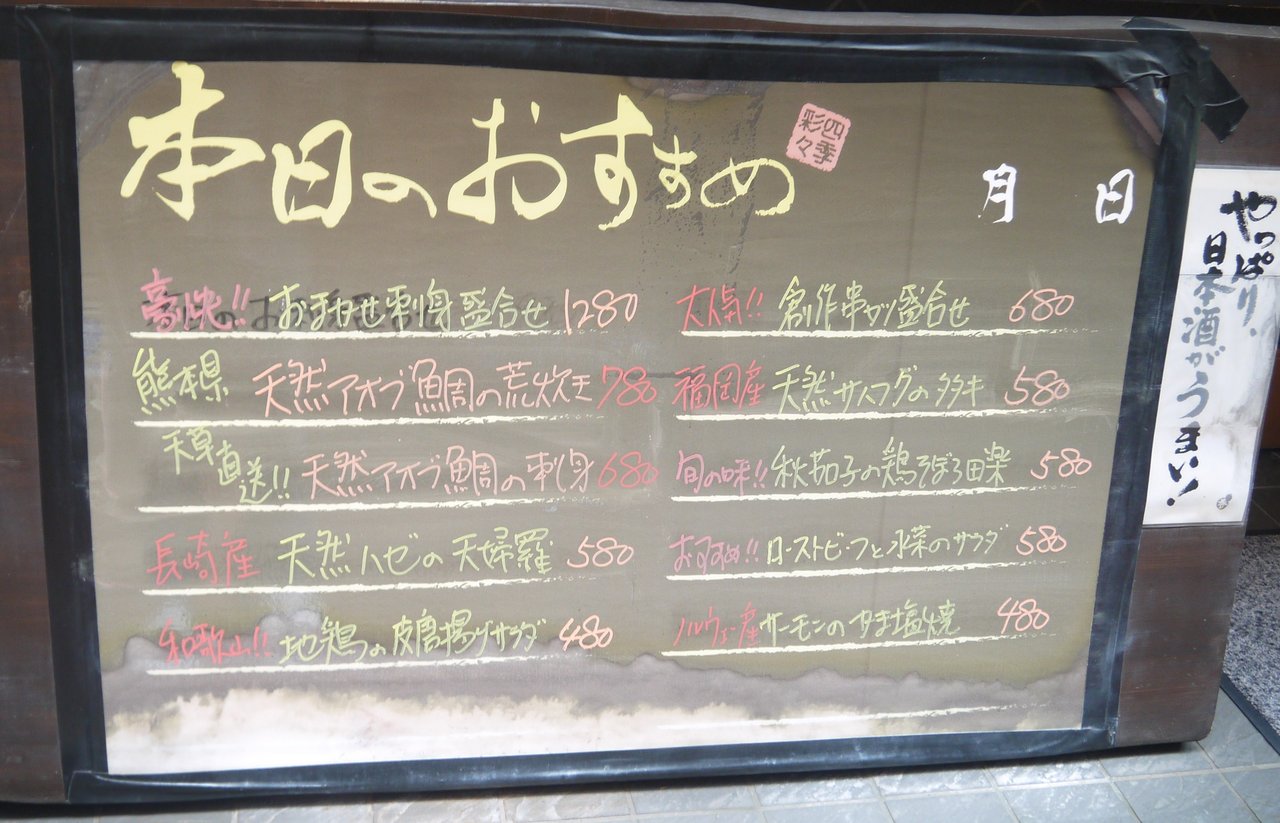 本日のおすすめ
四季
彩々
月 日
おまかせ刺身盛合せ 1280
熊本県 天然アオブ鯛の荒炊き 780
天草直送!! 天然アオブ鯛の刺身 680
長崎産 天然ハゼの天婦羅 580
和歌山!! 地鶏の皮唐揚げサラダ 480
大人気!! 創作串カツ盛合せ 680
福岡産 天然サ のタタキ 580
旬の味!! 秋茄子の鶏そぼろ田楽 580
おすすめ!! ローストビーフと水菜のサラダ 580
ノルウェー産 サーモンのかま塩焼 480
やっぱり、
日本酒が
うまい!